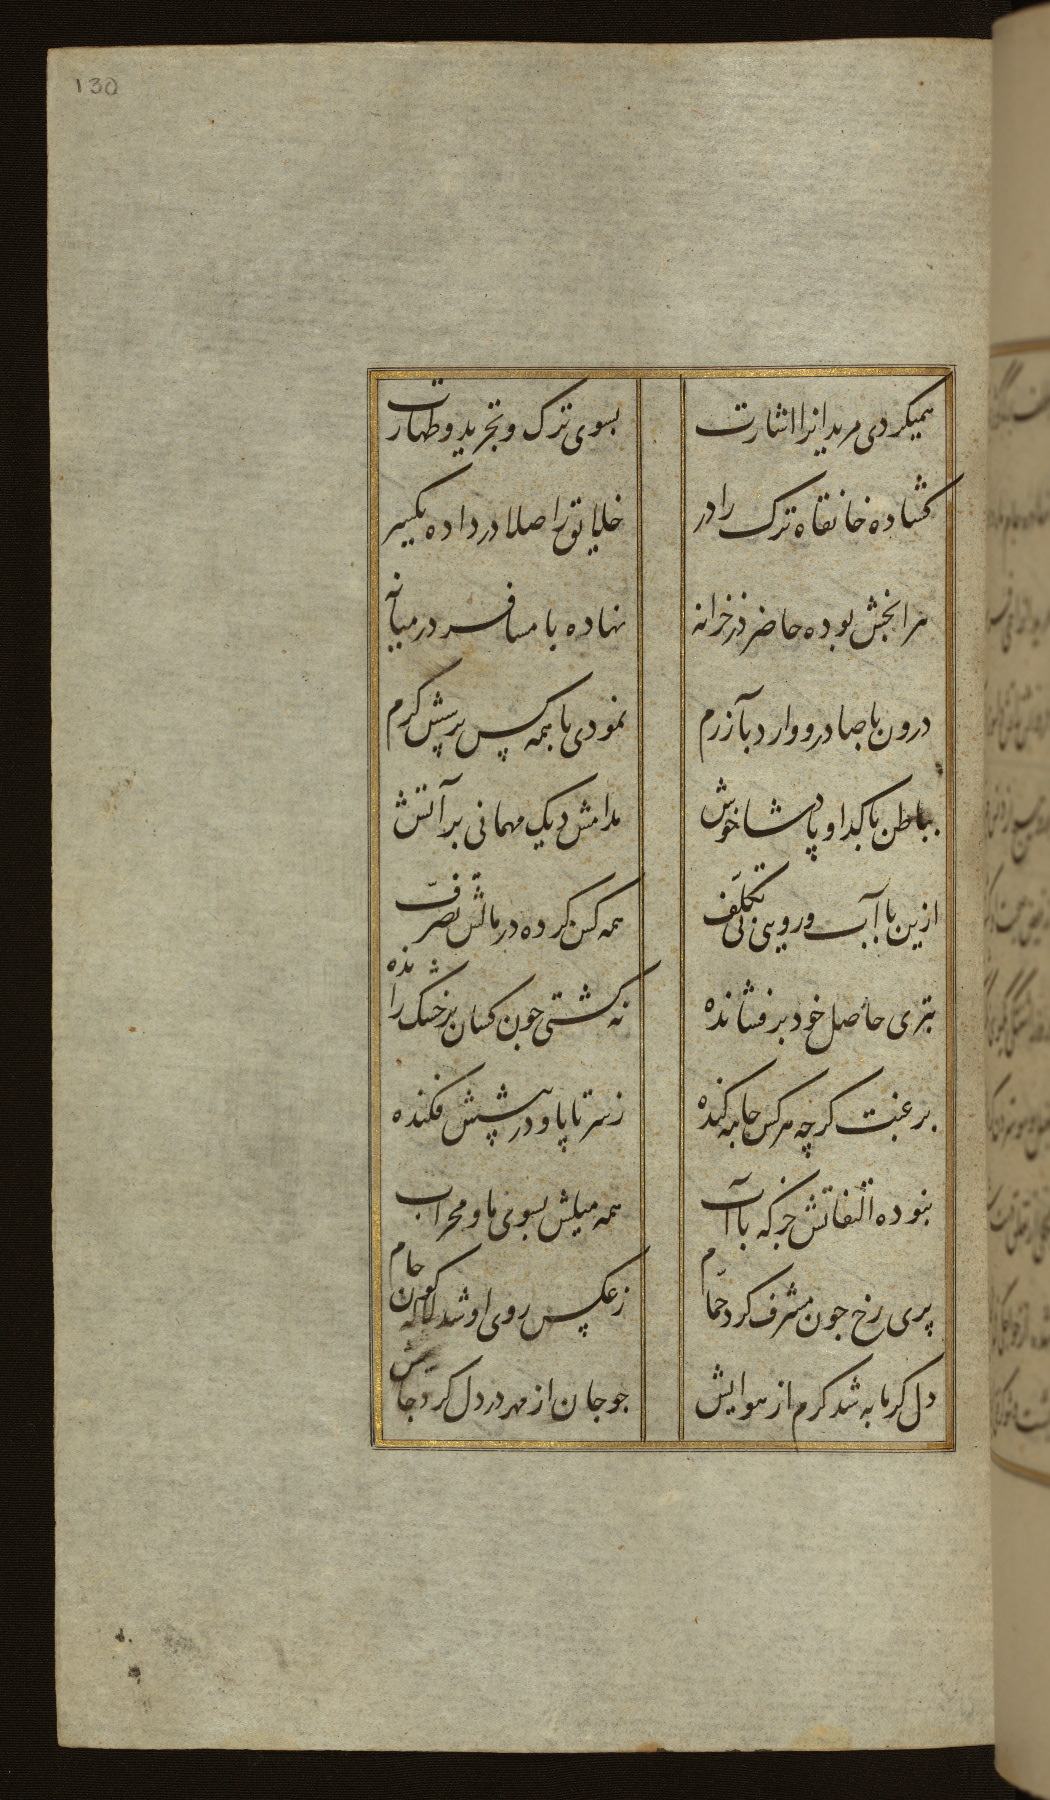 130
همیکردی مریدانرا اشارت
بسوی ترک و تجرید و طهارت
کشاده خانقاه ترک را در
خلایق را صلا در داده یکسر
هرانچش بوده حاضر در خزانه
نهاده با مسافر در میانه
درون با صادر و وارد بآزرم
نمودی با همه کس پرسش کرم
بباطن با کدا و پادشا خوش
مدامش دیک مهمانی بر آتش
ازین با آب و رویی بی تکلّف
همه کس کرده در مالش تصرّف
بتری حاصل خود برفشانده
نه کشتی چون کسان بر خشک رانده
برغبت کرچه هرکس جامه کنده
ز سر تا پا و در پیشش فکنده
بنوده التفاتش جز که با آب
همه میلش بسوی ما و محراب
پری رخ چون مشرف کرد حمّام
ز عکس روی او شد لاله کون جام
دل کرمابه شد کرم از هوایش
چو جان از مهر در دل کرد جایش